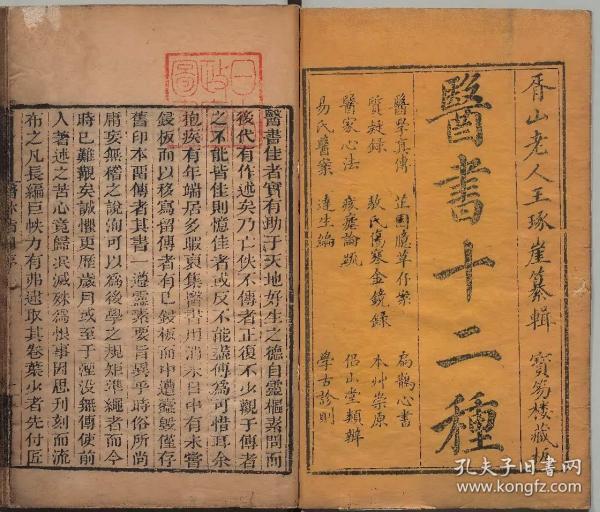 胥山老人王琢崖纂輯 寶笏樓藏板
醫書十二種
醫學真傳 芷園臆草存案 扁鵲心書
質疑錄 敖氏傷寒金鏡錄 本艸崇原
醫家心法 痎瘧論疏 侶山堂類辯
易氏醫案 達生編 學古診則
醫書佳者實有助于天地好生之德自靈樞素問而
後代有作述矣乃亡佚不傳者正復不少觀于傳者
之不能皆佳則憶佳者或反不能盡傳為可惜耳余
抱疾有年端居多暇裒集醫書用消永日中有未嘗
鋟板而以移寫留傳者有已鋟板而中遭燬僅存
舊印本而傳者其書一遵靈素要旨異乎時俗所尚
庸妄無稽之說洵可以為後學之規矩準繩者而今
時已難觀矣誠懼更歷歲月或至于湮沒無傳使前
人著述之苦心竟歸泯滅殊為悵事因思刊刻而流
布之凡長編巨帙力有弗逮取其卷葉少者先付匠
孔夫子旧书网
www.kongfz.com